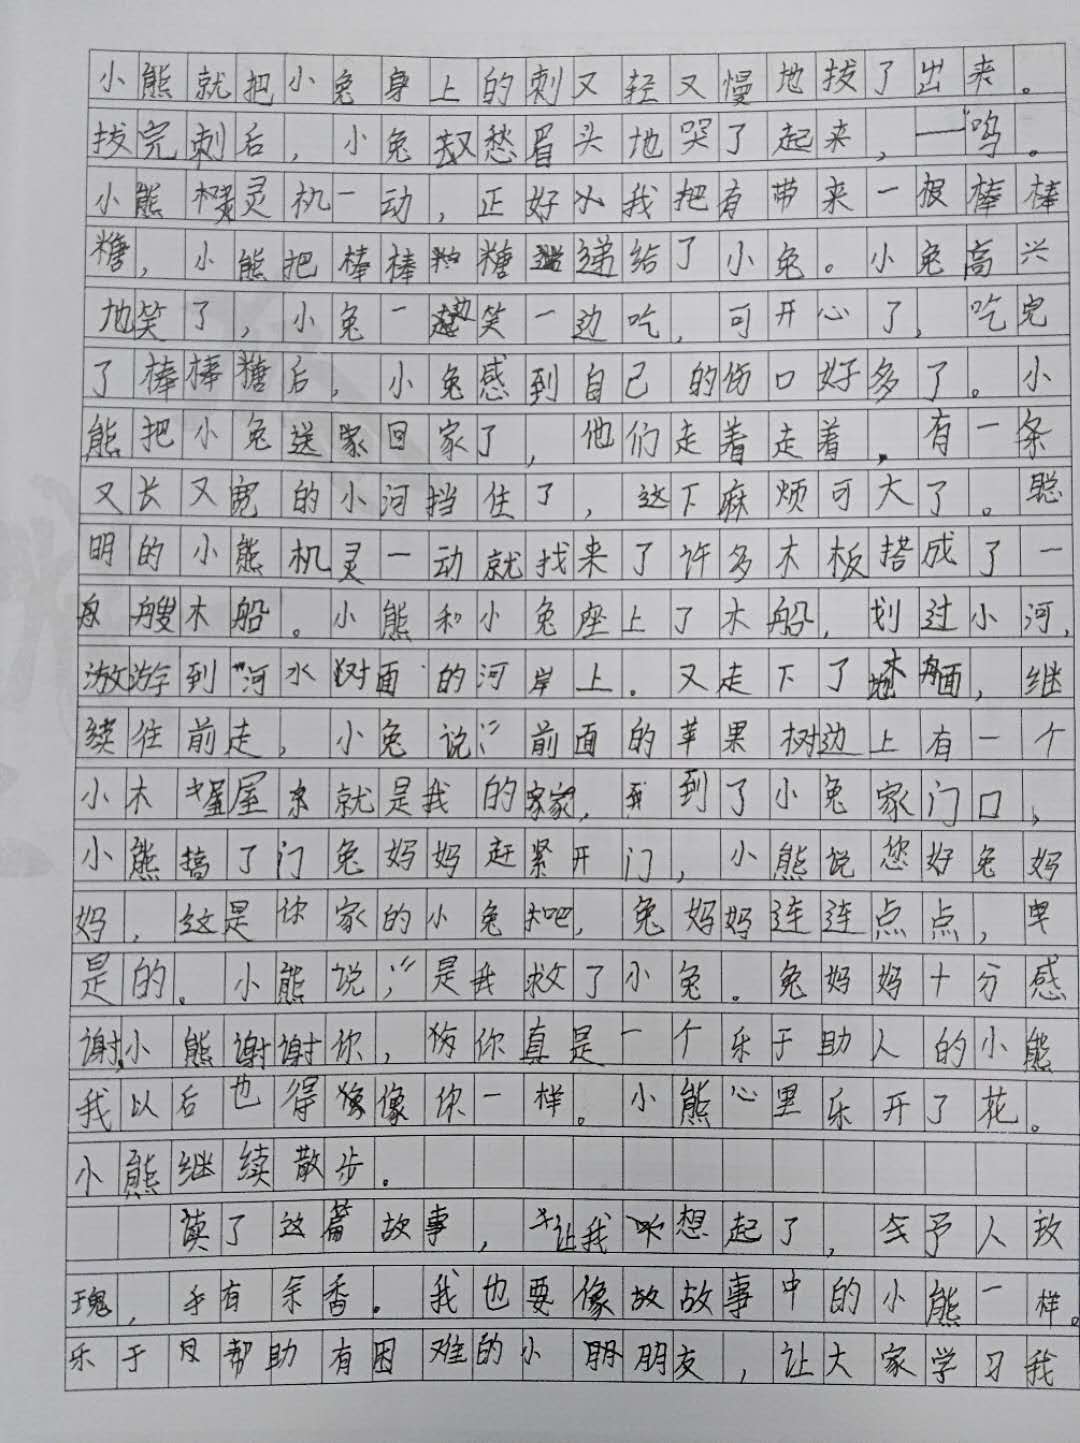 小熊就把小兔身上的刺又轻又慢地拔了出来。
拔完刺后，小兔又愁眉头地哭了起来，一呜。
小熊灵机一动，正好我把有带来一根棒棒
糖，小熊把棒棒糖递给了小兔。小兔高兴
地笑了，小兔一边笑一边吃，可开心了，吃完
了棒棒糖后，小兔感到自己的伤口好多了。小
熊把小兔送回家了，他们走着走着，有一条
又长又宽的小河挡住了，这下麻烦可大了。聪
明的小熊机灵一动就找来了许多木板搭成了一
艘木船。小熊和小兔座上了木船，划过小河，
游到河水对面的河岸上。又走下了木船面，继
续住前走，小兔说：“前面的苹果树边上有一个
小木屋就是我的家，到了小兔家门口，
小熊搞了门兔妈妈赶紧开门，小熊说您好兔妈
妈，这是你家的小兔吧，兔妈妈连连点点，
是的。小熊说；“是我救了小兔。兔妈妈十分感
谢，小熊谢谢你，你真是一个乐于助人的小熊
我以后也得像你一样。小熊心里乐开了花。
小熊继续散步。
读了这篇故事，让我想起了，予人玫
瑰，手有余香。我也要像故事中的小熊一样。
乐于帮助有困难的小朋友，让大家学习我